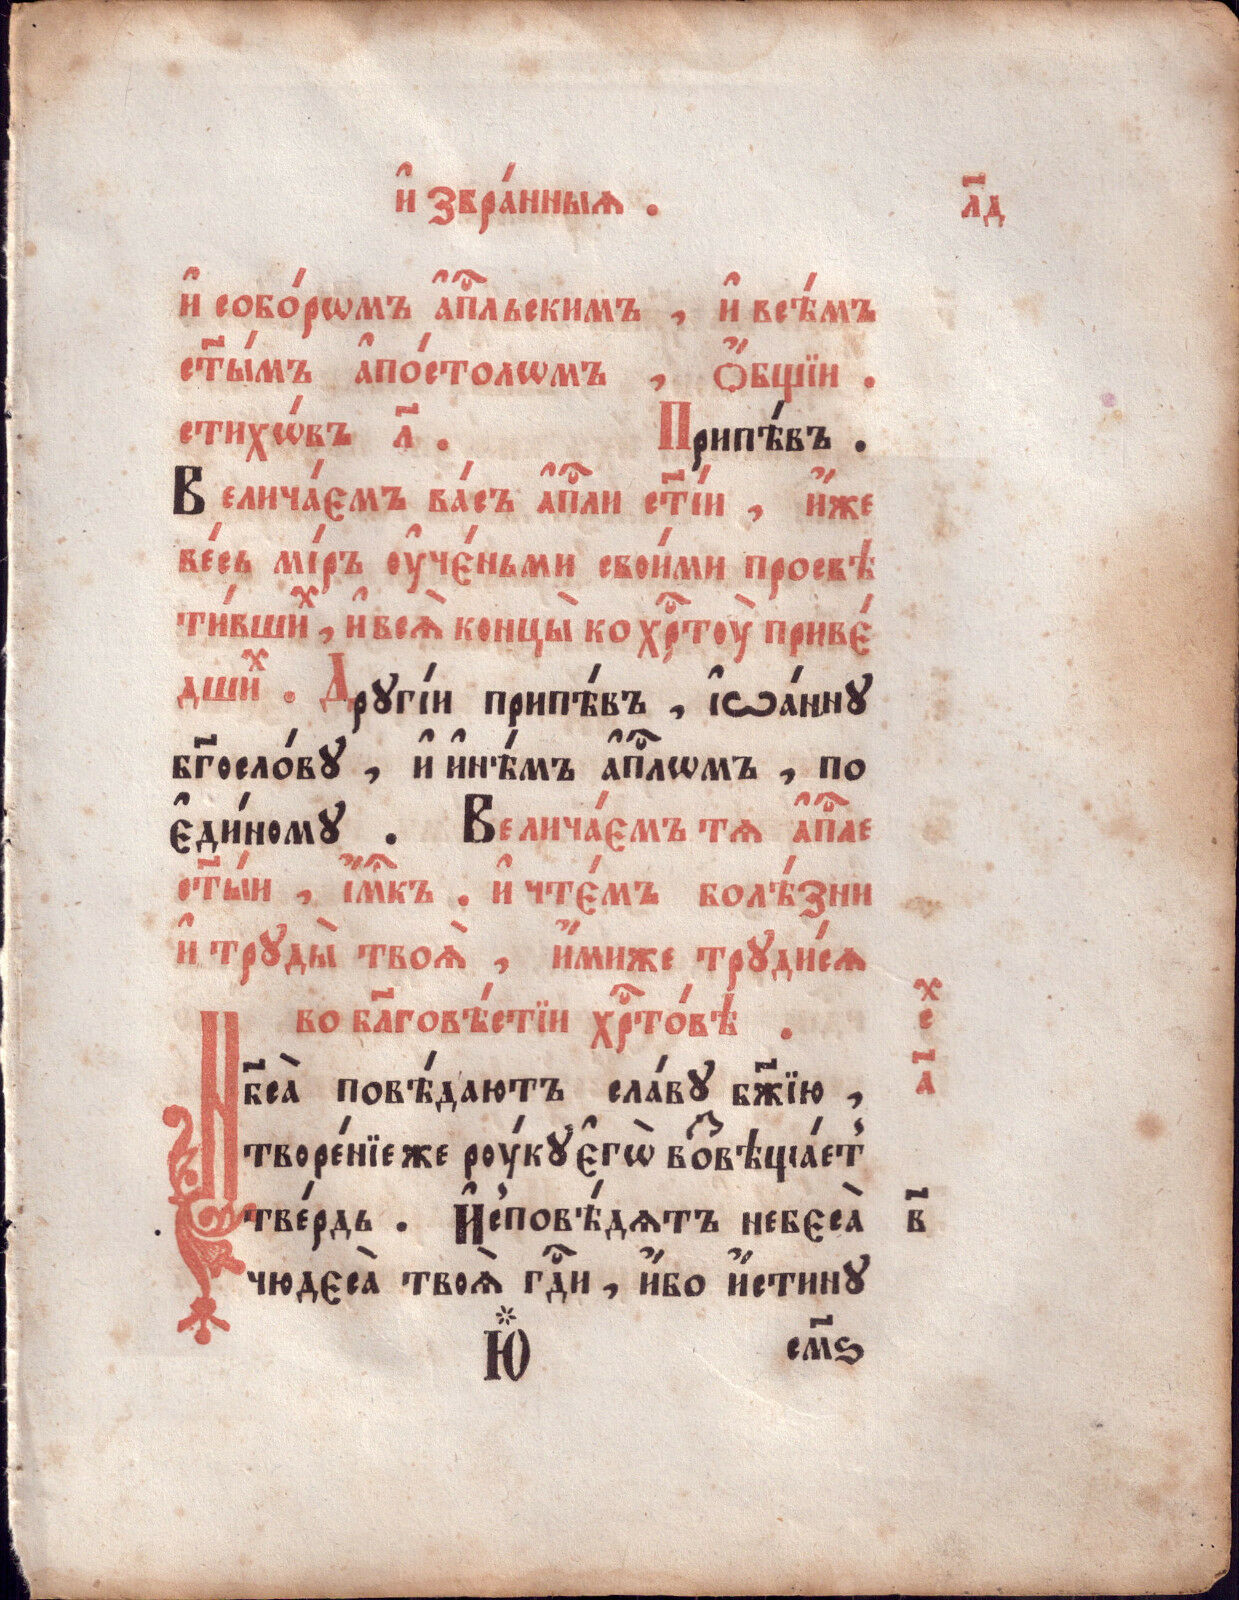 и҆ збра́нныѧ . л҃д
и҆ собо́рѡмъ а҆пⷭ҇льскимъ , и҆ всѣ́мъ
ст҃ы́мъ а҆по́столѡмъ , Ѻ҆́бщїи .
стихѡ́въ л҃ . Припѣ́въ .
Велича́ємъ ва́съ а҆пⷭ҇ли ст҃і́и , и҆́же
ве́сь мі́ръ оу҆че́ньми свои́ми просвѣ
ти́вшиⷯ , и҆ всѧ̀ концы̀ ко хрⷭ҇тоу̀ приве́
дшиⷯ . Дрꙋгі́и припѣ́въ , і҆ѡа́ннꙋ
бг҃осло́вꙋ , и҆ и҆нѣ́мъ а҆пⷭ҇лѡмъ , по
є҆ди́номꙋ . Велича́ємъ тѧ а҆пⷭ҇ле
ст҃ы́и , і҆́мⷬ҇къ . и҆ чте́мъ болѣ́зни
и҆ трꙋды̀ твоѧ̀ , и҆́миже трꙋди́сѧ
во бл҃говѣ́стїи хрⷭ҇то́вѣ .
ⷯ
с
а҃
Нб҃са̀ повѣ́даютъ сла́вꙋ бж҃їю ,
творе́нїе же роу́кꙋ є҆гѡ̀ воⷥвѣща́етъ
тве́рдь . И҆сповѣ́дѧтъ небєса̀ в҃
чюдєса̀ твоѧ̀ гдⷭ҇и , и҆́бо и҆́стинꙋ
Ю҆ см҃ѕ